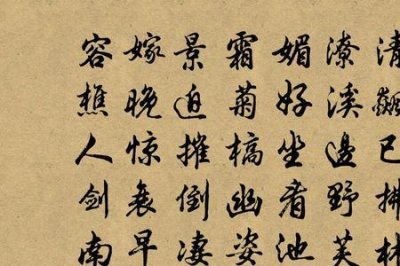 清飙已拂林
潦溪边野芙
媚好坐看池
霜菊槁幽姿
景迫摧倒凄
嫁晚惊衰早
容樵人剑南